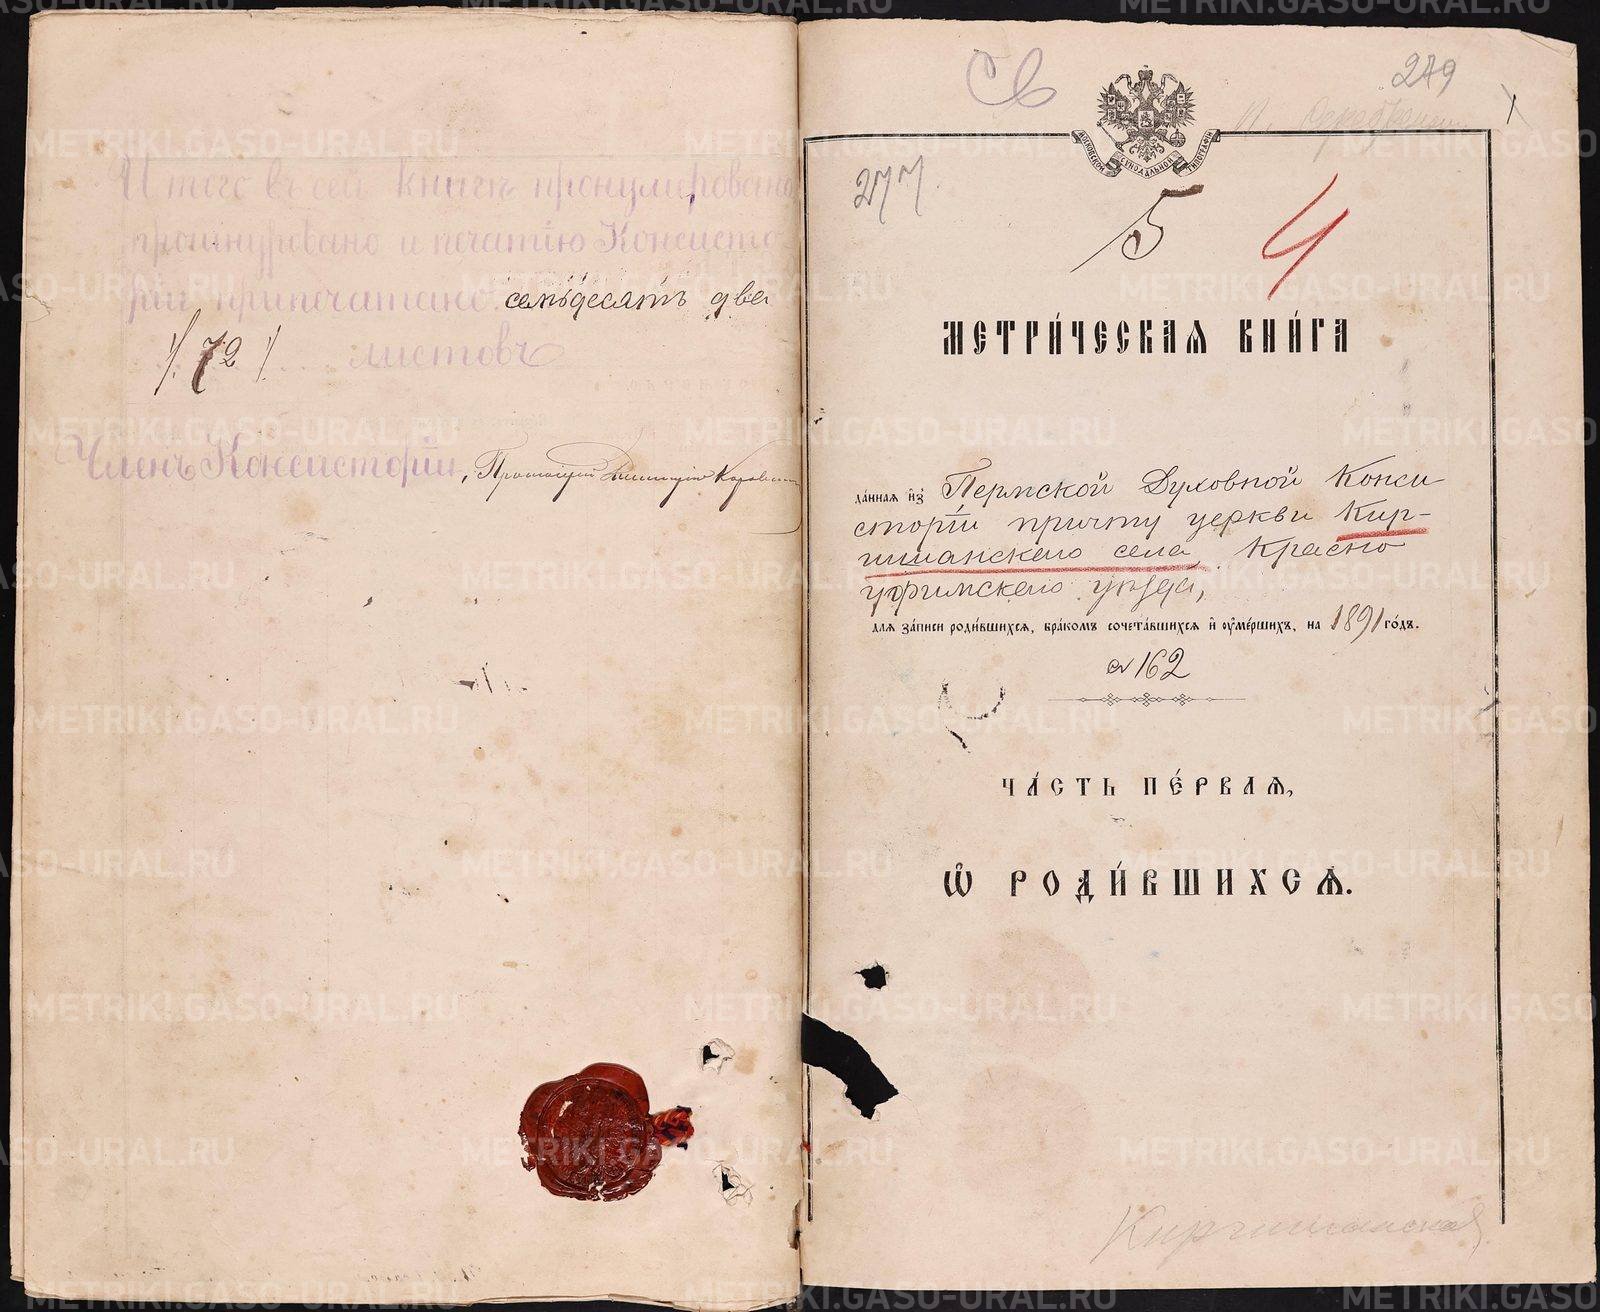 Итого въ сей книгѣ пронумеровано
прошнуровано и печатію Консисто
ріи припечатано семьдесятъ два
/72/ листовъ
Членъ Консисторіи, Протоіерей
Св
249
277
МОСКОВСКОЙ СѴНОДАЛЬНОЙ ТИПОГРАФІИ
5
4
МЕТРИ́ЧЕСКАѦ КНИ́ГА
да́ннаѧ и҆з̾ Пермской Духовной Конси
сторіи причту церкви Кир-
гишанскаго села, Красно
уфимскаго уѣзда,
длѧ за́писи роди́вшихсѧ, бра́комъ сочета́вшихсѧ и҆ оу҆ме́ршихъ, на 1891 го́дъ.
№ 162
ЧА́СТЬ ПЕ́РВАѦ,
Ѽ РОДИ́ВШИХСѦ.
Киргишанская
METRIKI.GASO-URAL.RU